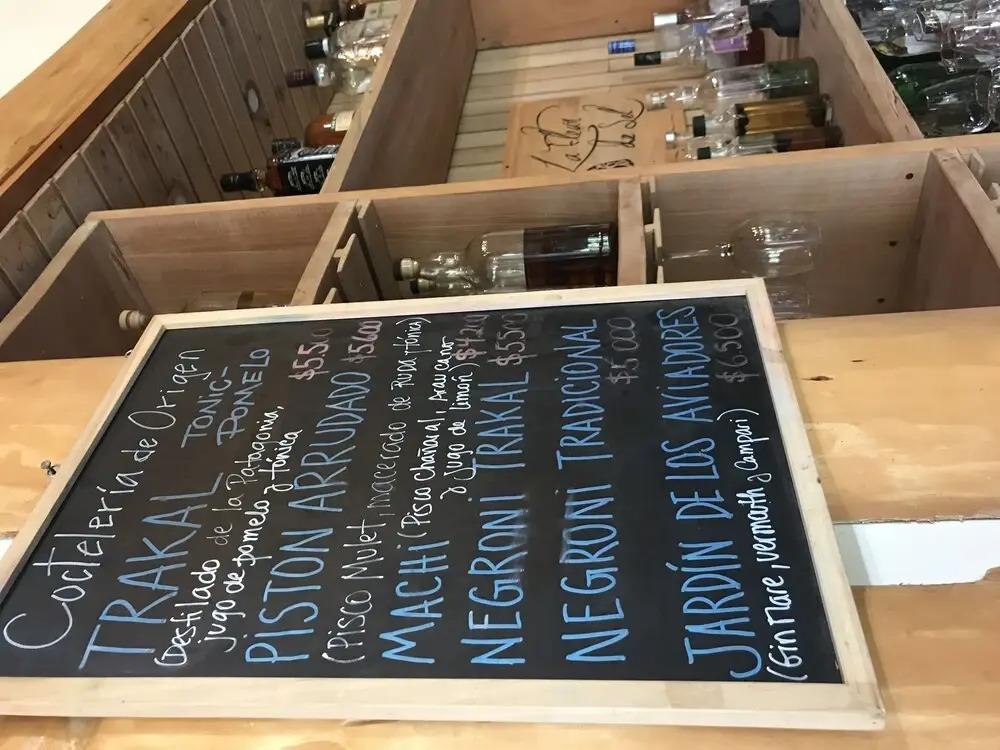 Coctelería de Origen
TRAKAL TONIC-
POMELO
(Destilado de la Patagonia,
jugo de pomelo y tónica
$5.500
PISTON ARRUDADO $5600
(Pisco Mulet, macerado de RUDA y tónica)
MACHI (Pisco Chañaral, Araucano
y jugo de limón) $4200
NEGRONI TRAKAL $5.500
NEGRONI TRADICIONAL
$5000
JARDÍN DE LOS AVIADORES
$6500
(Gin Mare, vermouth y Campari)
La Fleur
de Sel